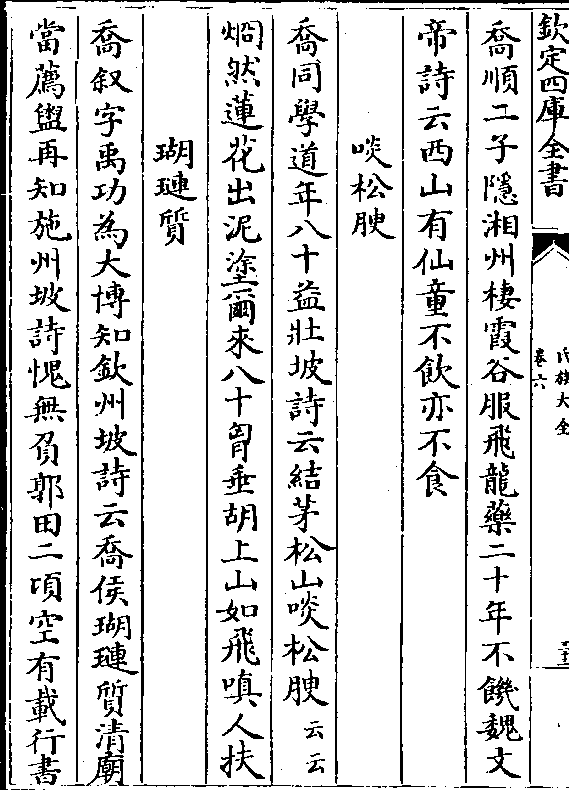 欽定四庫全書
氏族大全
卷六
喬順二子隱湘州棲霞谷服飛龍藥二十年不饑魏文
帝詩云西山有仙童不飲亦不食
啖松腴
喬同學道年八十益壯坡詩云結茅松山啖松腴云云
烱然蓮花出泥塗爾來八十胷垂胡上山如飛嗔人扶
瑚璉質
喬叙字禹功為大博知欽州坡詩云喬侯瑚璉質清廟
當薦盥再知施州坡詩愧無負郭田二項空有載行書